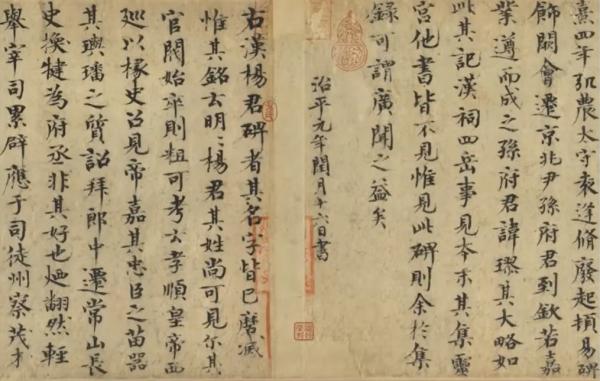 熹四年弘農太守袁逢脩廢起頓易碑
飾闕會遷京兆尹孫府君到欽若嘉
業遵而成之孫府君諱璆其大略如
此其記漢祠四岳事見本末其集靈
宮他書皆不見惟見此碑則余於集
錄可謂廣聞之益矣
治平元年閏月十六日書
右漢楊君碑者其名字皆已磨滅
惟其銘云明〻楊君其姓尚可見尔其
官閥始卒則粗可考云孝順皇帝西
巡以掾史召見帝嘉其忠臣之苗器
其璵璠之質詔拜郎中遷常山長
史換犍為府丞非其好也迺翻然輕
舉宰司累辟應于司徒州察茂才